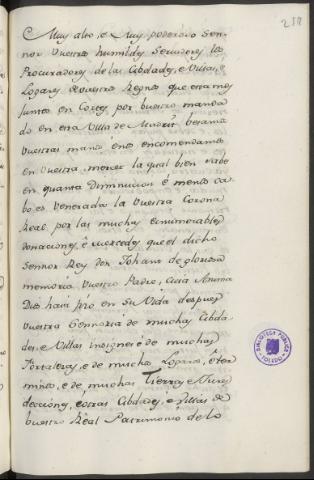 218
Muy alto, e Muy poderoso Sen-
nor Vuestros humildes Servidores los
Procuradores de las Cibdades, e Villas, e
Logares de vuestros Regnos que estamos
juntos en Cortes por vuestro manda
do en esta Villa de Madrit besamos
vuestras manos encomendamos
en vuestra merced la qual bien sabe
en quanta diminucion e menos ca-
bo es venerada la Vuestra Corona
Real por las muchas e inumerables
donaciones, e mercedes que el dicho
Sennor Rey don Johans de gloriosa
memoria vuestro Padre, cuia Anima
Dios haia fiso en su Vida despues
vuestra Sennoria de muchas Cibda
des, e Villas insignes e de muchas
Fortalezas, e de muchos Logares, e ter
minos, e de muchas Tierras e Jures
decciones, e otras Cibdades, e Villas de
vuestro Real Patrimonio de lo
BIBLIOTECA PUBLICA
TOLEDO